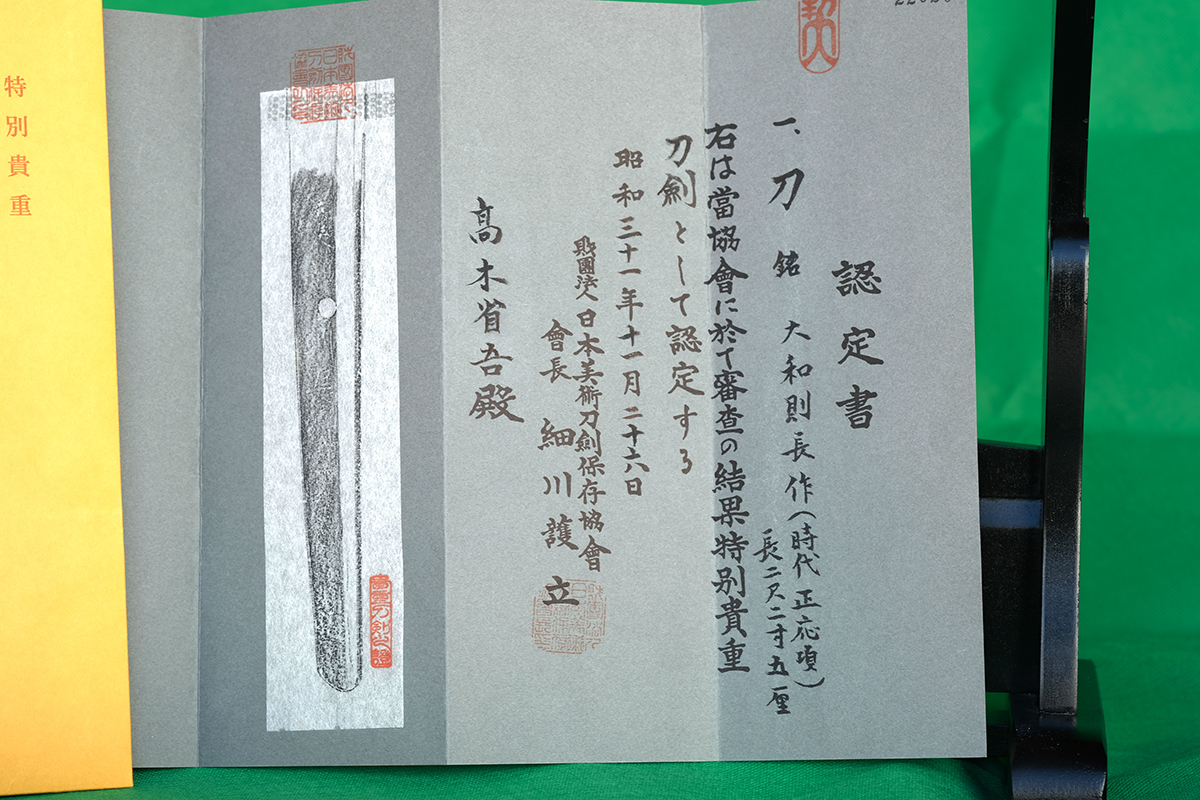 認定書
一、刀 銘 大和則長作(時代 正応頃)
長二尺二寸五厘
右は當協會に於て審査の結果特別貴重
刀劍として認定する
昭和三十一年十一月二十六日
財團法人日本美術刀劍保存協會
會長 細川護立
高木省吾殿
特別貴重